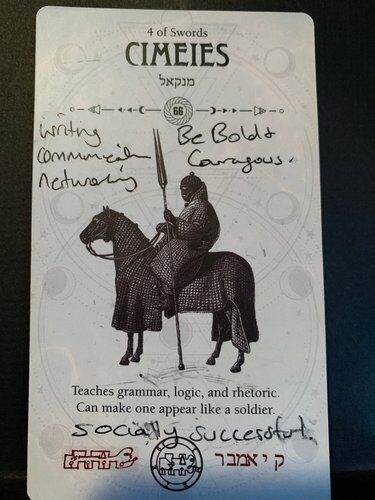 4 of Swords
CIMEIES
מנקאל
66
writing
Networking
Be Bold &
Teaches grammar, logic, and rhetoric.
Can make one appear like a soldier.
socially successful.
ק י אמבר